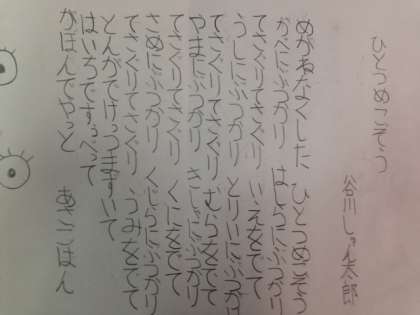 ひとつめこぞう
谷川しゅん太郎
めがねなくした ひとつめこぞう
がくにぶつかり はしらにぶつかり
てさぐりてさぐり いえをでて
うしにぶつかり とりにぶつかり
てさぐりてさぐり むらをでて
やまにぶつかり にぶつかり
てさぐりてさぐり くにをでて
さめにぶつかり くじらにぶつかり
てさぐりてさぐり うみをでて
けつまずいて
やっと